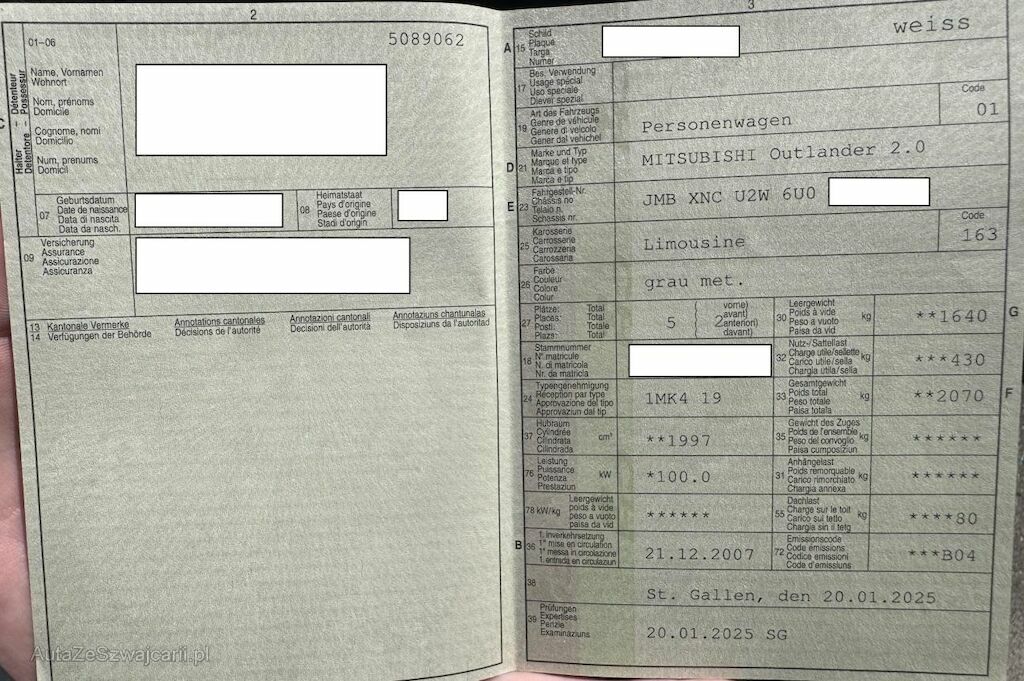 2
01–06
5089062
Halter - Détenteur
Detentore - Possessur
Name, Vornamen
Wohnort
Nom, prénoms
Domicile
Cognome, nomi
Domicilio
Num, prenums
Domicil
07
Geburtsdatum
Date de naissance
Data di nascita
Data da nasch.
08
Heimatstaat
Pays d'origine
Paese d'origine
Stadi d'origin
09
Versicherung
Assurance
Assicurazione
Assicuranza
13 Kantonale Vermerke
14 Verfügungen der Behörde
Annotations cantonales
Décisions de l'autorité
Annotazioni cantonali
Decisioni dell'autorità
Annotaziuns chantunalas
Disposiziuns da l'autoritad
AutaZeSzwajcarii.pl
3
A 15
Schild
Plaque
Targa
Numer
weiss
17
Bes. Verwendung
Usage spécial
Uso speciale
Diever spezial
19
Art des Fahrzeugs
Genre de véhicule
Genere di veicolo
Gener dal vehichel
Personenwagen
Code
01
D 21
Marke und Typ
Marque et type
Marca e tipo
Marca e tip
MITSUBISHI Outlander 2.0
E 23
Fahrgestell-Nr.
Châssis no
Telaio n.
Schassis nr.
JMB XNC U2W 6U0
25
Karosserie
Carrosserie
Carrozzeria
Carossaria
Limousine
Code
163
26
Farbe
Couleur
Colore
Colur
grau met.
27
Plätze: Total
Places: Total
Posti: Totale
Plazs: Total
5 ( 2
vorne)
avant)
anteriori)
davant)
30
Leergewicht
Poids à vide
Peso a vuoto
Paisa da vid
kg
**1640
G
18
Stammnummer
N° matricule
N. di matricola
Nr. da matricla
32
Nutz-/Sattellast
Charge utile/sellette
Carico utile/sella
Chargia utila/sella
kg
***430
24
Typengenehmigung
Réception par type
Approvazione del tipo
Approvaziun dal tip
1MK4 19
33
Gesamtgewicht
Poids total
Peso totale
Paisa totala
kg
**2070
F
37
Hubraum
Cylindrée
Cilindrata
Cilindrada
cm³
**1997
35
Gewicht des Zuges
Poids de l'ensemble
Peso del convoglio
Paisa cumposiziun
kg
******
76
Leistung
Puissance
Potenza
Prestaziun
kW
*100.0
31
Anhängelast
Poids remorquable
Carico rimorchiato
Chargia annexa
kg
******
78 kW/kg
Leergewicht
poids à vide
peso a vuoto
paisa da vid
******
55
Dachlast
Charge sur le toit
Carico sul tetto
Chargia sin il tetg
kg
****80
B 36
1. Inverkehrsetzung
1re mise en circulation
1a messa in circolazione
1. entrada en circulaziun
21.12.2007
72
Emissionscode
Code émissions
Codice emissioni
Code d'emissiuns
***B04
38
St. Gallen, den 20.01.2025
39
Prüfungen
Expertises
Perizie
Examinaziuns
20.01.2025 SG